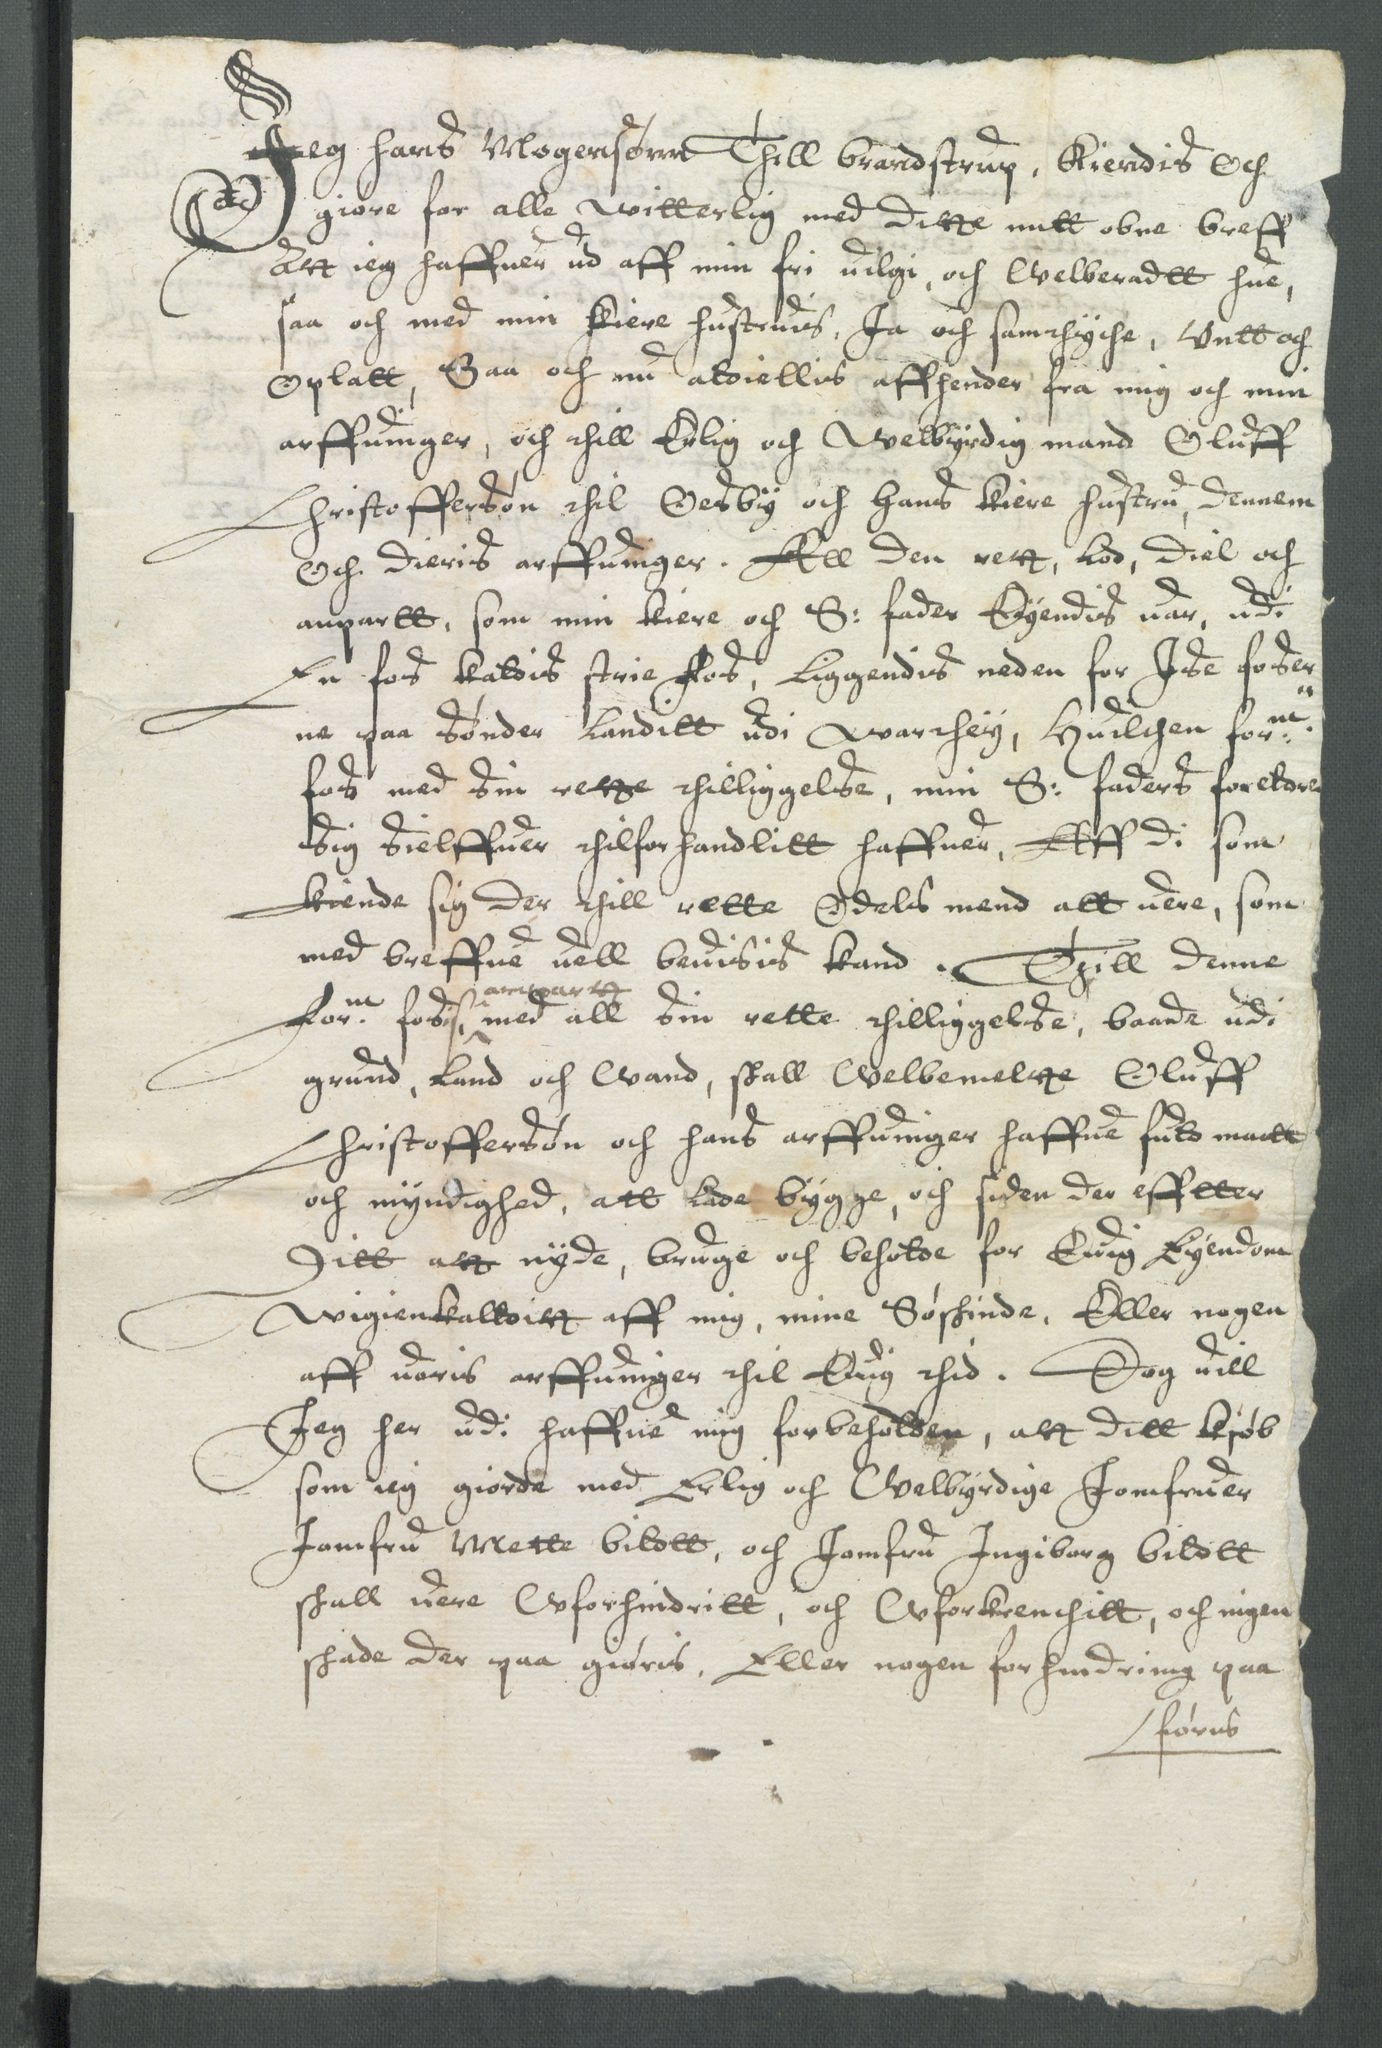 Jeg Hans Mogensønn Thill Brandstrup, Kiendis Och
giøre for alle witterlig med dette mitt obne breff
Att ieg haffuer ud aff min fri uilgi, och Welberadtt hue,
saa och med min kiere hustruis, Ja och samthyche, Untt och
Oplatt, Saa och nu aldiellis affhender fra mig och min
arffuinger, och thill Erlig och Welbyrdig mand Oluff
Christoffersøn thil Oesby och Hans kiere hustru, dennem
Och dieris arffuinger. All den rett, Lod, diel och
anpartt, som min kiere och S: fader Eyendis uar, udi
En fos kaldis strie Fos, Liggendis neden for Ise foser
ne paa Sønder Landitt udi Warthey, Huilchen form:
fos med Sin rette thilliggelse, min S: faders foreldre
Sig Sielffuer thilforhandlitt haffuer, Aff di som
kiende sig der thill rette Odels mend att uere, som
med breffue uell beuisis kand. Thill denne
Form: fosis, anpartt med all Sin rette thilliggelse, baade udi
grund, Land och Wand, skall Welbemelte Oluff
Christoffersøn och hans arffuinger haffue fuld macktt
och myndighed, att Lade bygge, och siden der effter
Ditt att nyde, bruge och beholde for Euig Eyendom
wigienkalditt aff mig, mine Søskinde, Eller nogen
aff uoris arffuinger thil Euig thid. Dog uill
Jeg her udi haffue mig forbeholden, att ditt kiøb
som ieg giorde med Erlig och Welbyrdige Jomfruer
Jomfru Mette bildtt, och Jomfru Ingiborg bildtt
skall uere Uforhindritt, och Uforkrenchitt, och ingen
skade der paa giøris, Eller nogen forhindring paa
føris